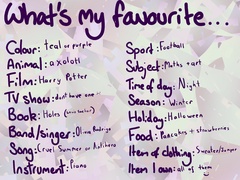 What's my favourite...
Colour: teal or purple
Animal: axolotl
Film: Harry Potter
TV show: dont have one
Book: Holes
Band/singer: Olivia Rodrigo
Song: Cruel Summer or Antihero
Instrument: Piano
Sport: Football
Subject: Maths + art
Time of day: Night
Season: Winter
Holiday: Halloween
Food: Pancakes + strawberries
Item of clothing: Sweater/Jumper
Item I own: all of them